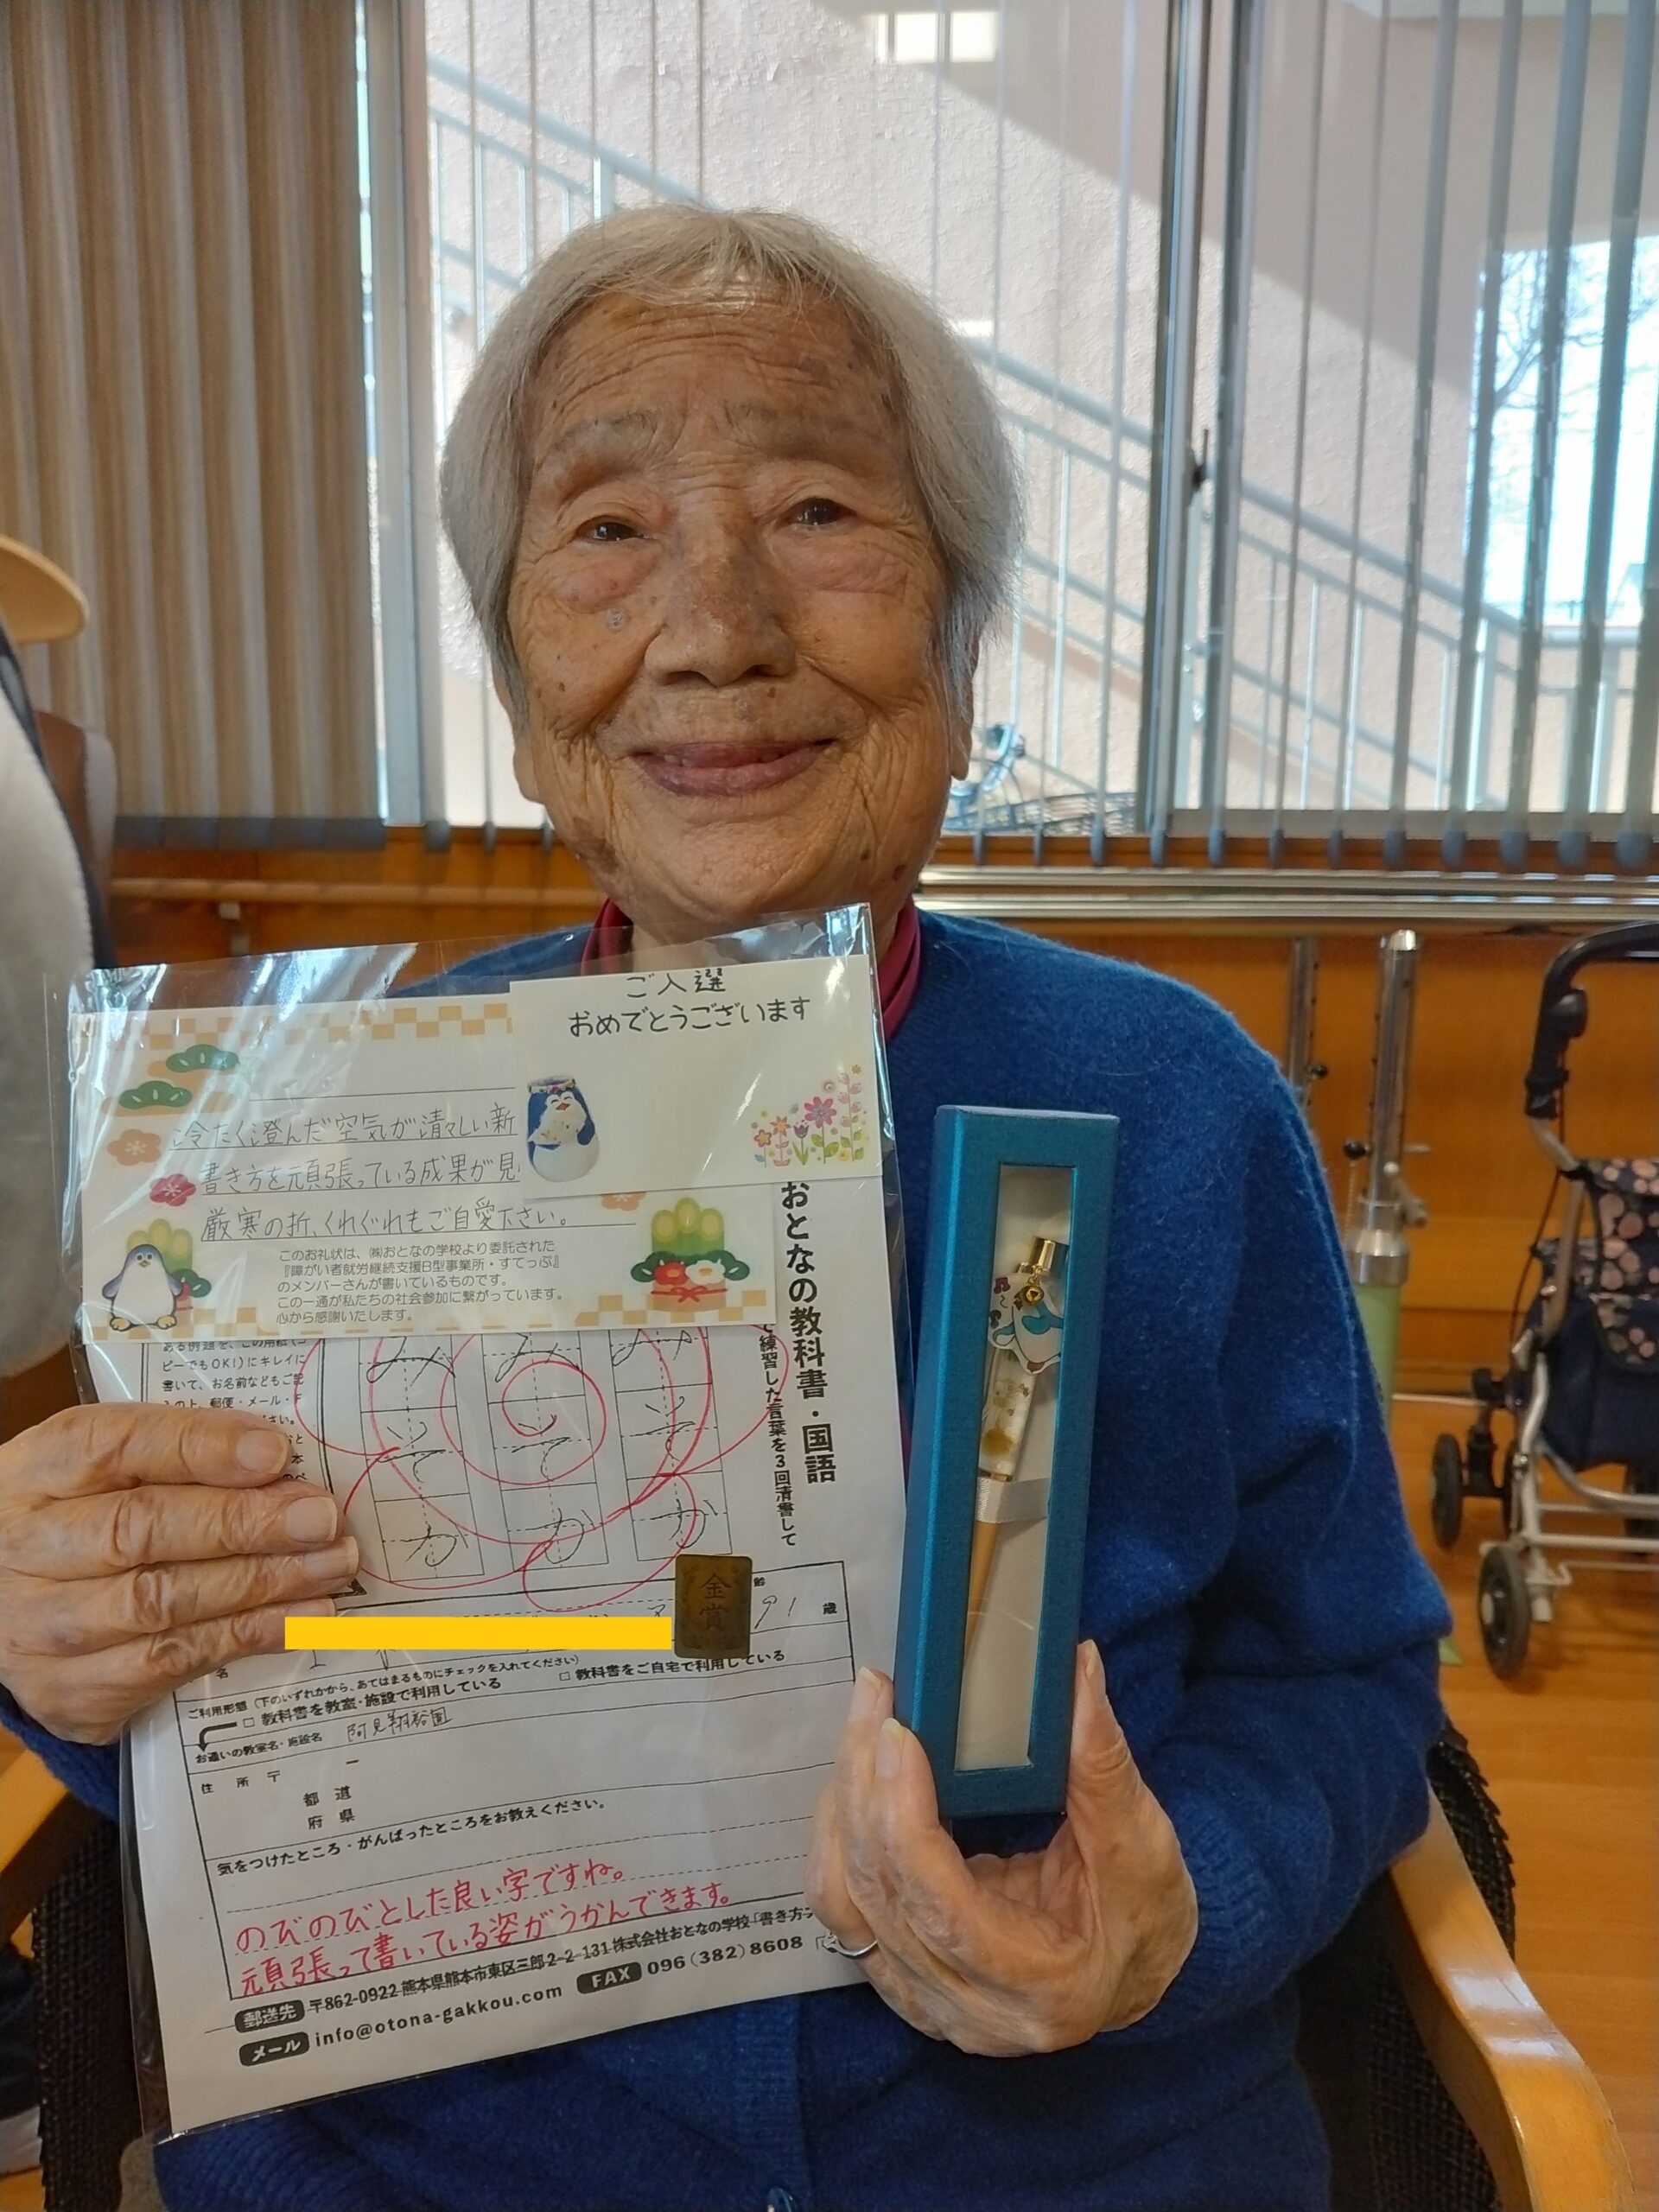 ご入選
おめでとうございます
冷たく澄んだ空気が清々しい新
書き方を頑張っている成果が見
厳寒の折、くれぐれもご自愛下さい。
このお礼状は、㈱おとなの学校より委託された
『障がい者就労継続支援B型事業所・すてっぷ』
のメンバーさんが書いているものです。
この一通が私たちの社会参加に繋がっています。
心から感謝いたします。
おとなの教科書・国語
練習した言葉を3回清書して
ある例題を、この用紙(コ
ピーでもOK!)にキレイに
書いて、お名前などもご記
入の上、郵便・メール・F
金賞
齢
91
歳
名
ご利用形態(下のいずれかから、あてはまるものにチェックを入れてください)
□ 教科書を教室・施設で利用している
□ 教科書をご自宅で利用している
お通いの教室名・施設名 阿見翔裕園
住所 〒 ー
都道
府県
気をつけたところ・がんばったところをお教えください。
のびのびとした良い字ですね。
頑張って書いている姿がうかんできます。
郵送先 〒862-0922 熊本県熊本市東区三郎2-2-131 株式会社おとなの学校「書き方
メール info@otona-gakkou.com FAX 096(382)8608